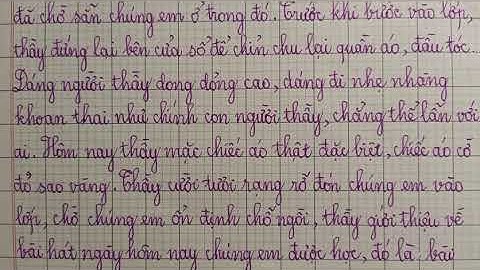 đã chờ sẵn chúng em ở trong đó. Trước khi bước vào lớp,
thầy đứng lại bên cửa sổ để chỉn chu lại quần áo, đầu tóc...
Dáng người thầy dong dỏng cao, dáng đi nhẹ nhàng
khoan thai như chính con người thầy, chẳng thể lẫn với
ai. Hôm nay thầy mặc chiếc áo thật đặc biệt, chiếc áo cờ
đỏ sao vàng. Thầy cười tươi rạng rỡ đón chúng em vào
lớp, chờ chúng em ổn định chỗ ngồi, thầy giới thiệu về
bài hát ngày hôm nay chúng em được học, đó là bài